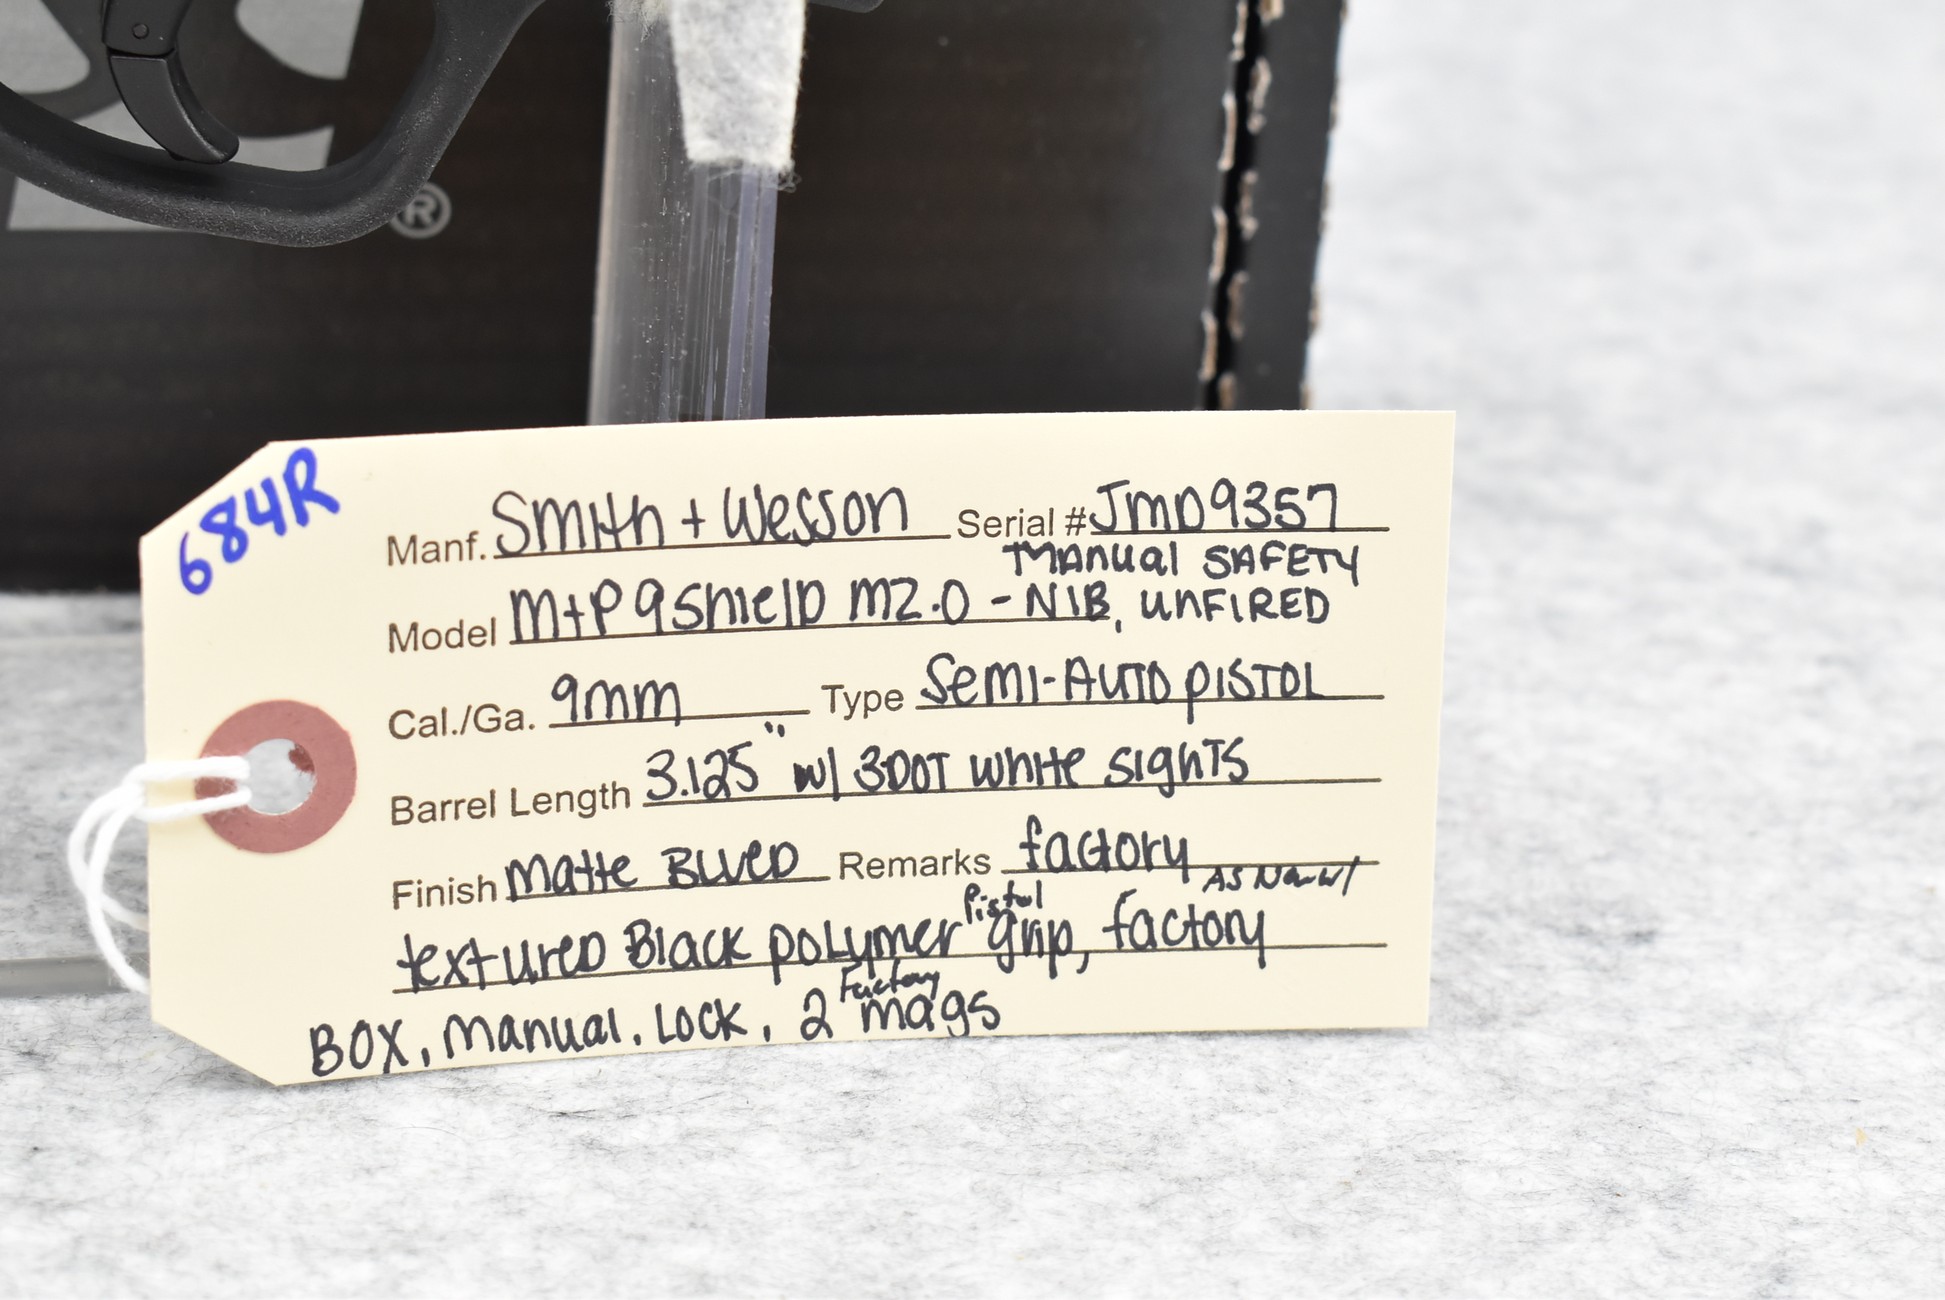 ®
684R
Manf. Smith + Wesson Serial # JMD9357
Manual SAFETY
Model M+P 9 Shield M2.0 - NIB, UNFIRED
Cal./Ga. 9mm Type Semi-Auto Pistol
Barrel Length 3.125" w/ 3DOT white sights
Finish Matte Blued Remarks factory
As New w/
textured Black polymer Pistol grip, factory
BOX, Manual, Lock, 2 Factory mags